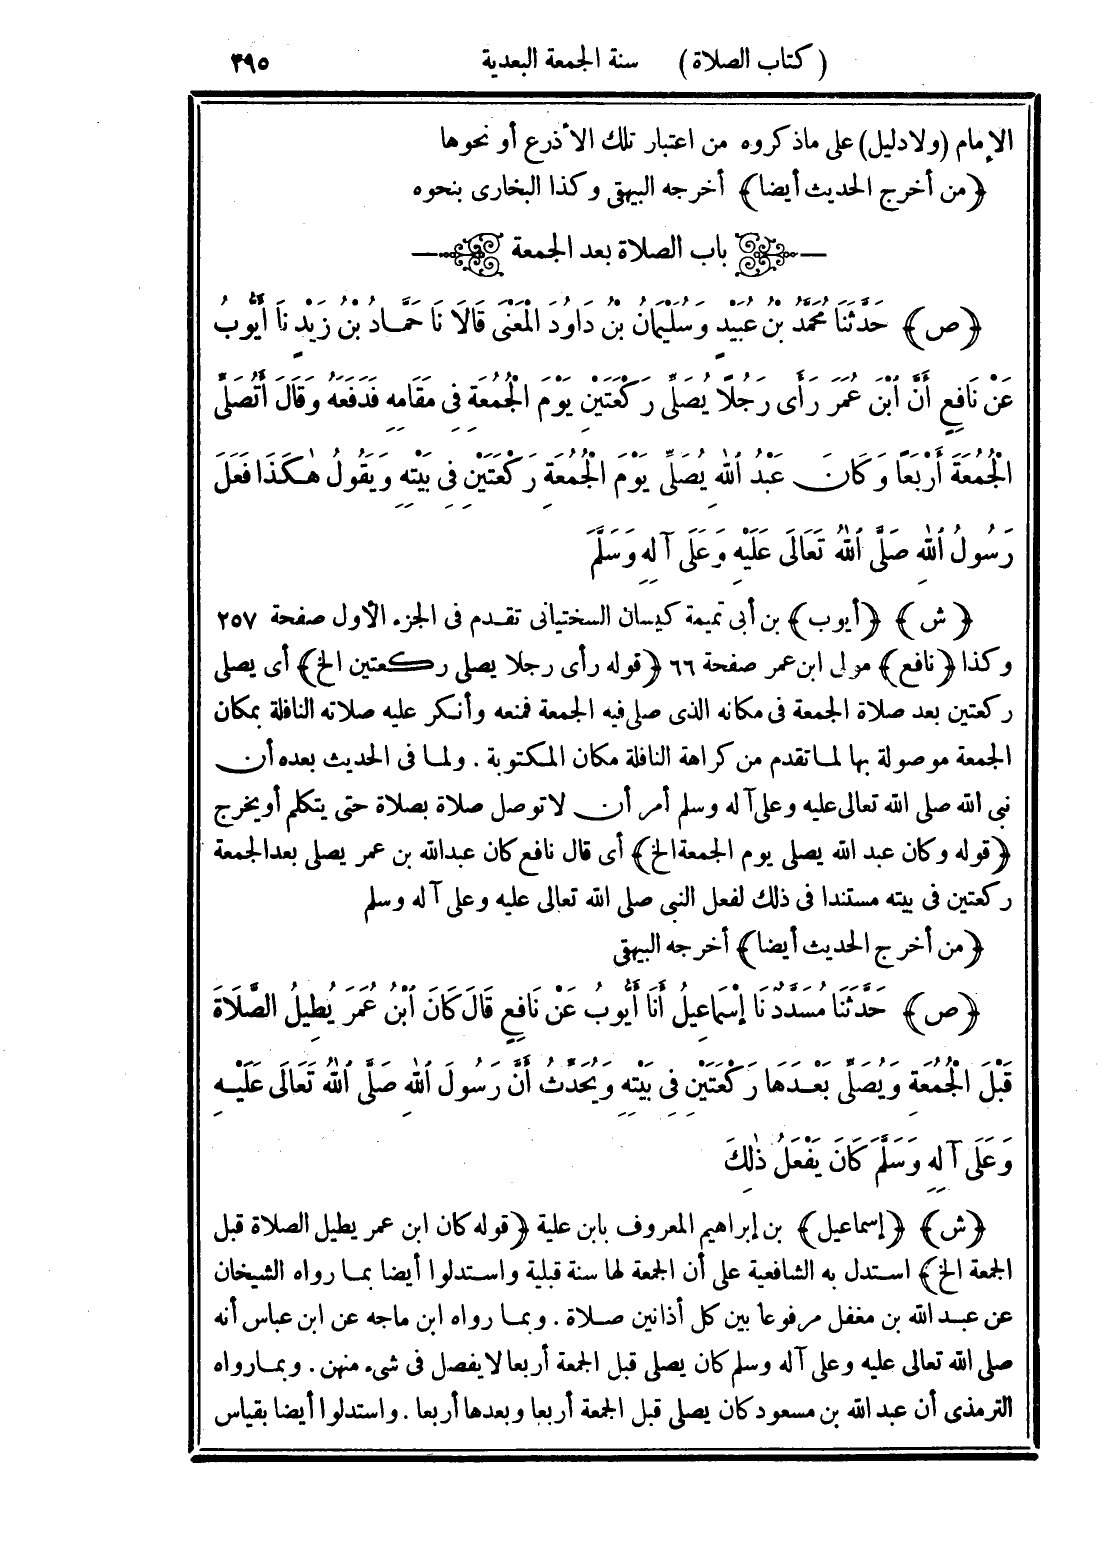 (كتاب الصلاة) سنة الجمعة البعدية ٢٩٥
الإمام (ولادليل) على ماذكروه من اعتبار تلك الأذرع أو نحوها
﴿من أخرج الحديث أيضا﴾ أخرجه البيهقى وكذا البخارى بنحوه
باب الصلاة بعد الجمعة
﴿ص﴾ حَدَّثَنَا مُحَمَّدُ بْنُ عُبَيْدٍ وَسُلَيْمَانُ بْنُ دَاوُدَ الْمَعْنَى قَالَا نَا حَمَّادُ بْنُ زَيْدٍ نَا أَيُّوبُ
عَنْ نَافِعٍ أَنَّ ابْنَ عُمَرَ رَأَى رَجُلًا يُصَلِّى رَكْعَتَيْنِ يَوْمَ الْجُمُعَةِ فِى مَقَامِهِ فَدَفَعَهُ وَقَالَ أَتُصَلِّى
الْجُمُعَةَ أَرْبَعًا وَكَانَ عَبْدُ اللهِ يُصَلِّى يَوْمَ الْجُمُعَةِ رَكْعَتَيْنِ فِى بَيْتِهِ وَيَقُولُ هٰكَذَا فَعَلَ
رَسُولُ اللهِ صَلَّى اللهُ تَعَالَى عَلَيْهِ وَعَلَى آلِهِ وَسَلَّمَ
﴿ش﴾ ﴿أيوب﴾ بن أبى تميمة كيسان السختيانى تقدم فى الجزء الأول صفحة ٢٥٧
وكذا ﴿نافع﴾ مولى ابن عمر صفحة ٦٦ ﴿قوله رأى رجلا يصلى ركعتين الخ﴾ أى يصلى
ركعتين بعد صلاة الجمعة فى مكانه الذى صلى فيه الجمعة فمنعه وأنكر عليه صلاته النافلة بمكان
الجمعة موصولة بها لما تقدم من كراهة النافلة مكان المكتوبة . ولما فى الحديث بعده أن
نبى الله صلى الله تعالى عليه وعلى آله وسلم أمر أن لاتوصل صلاة بصلاة حتى يتكلم أو يخرج
﴿قوله وكان عبد الله يصلى يوم الجمعة الخ﴾ أى قال نافع كان عبدالله بن عمر يصلى بعد الجمعة
ركعتين فى بيته مستندا فى ذلك لفعل النبى صلى الله تعالى عليه وعلى آله وسلم
﴿من أخرج الحديث أيضا﴾ أخرجه البيهقى
﴿ص﴾ حَدَّثَنَا مُسَدَّدٌ نَا إِسْمَاعِيلُ أَنَا أَيُّوبُ عَنْ نَافِعٍ قَالَ كَانَ ابْنُ عُمَرَ يُطِيلُ الصَّلَاةَ
قَبْلَ الْجُمُعَةِ وَيُصَلِّى بَعْدَهَا رَكْعَتَيْنِ فِى بَيْتِهِ وَيُحَدِّثُ أَنَّ رَسُولَ اللهِ صَلَّى اللهُ تَعَالَى عَلَيْهِ
وَعَلَى آلِهِ وَسَلَّمَ كَانَ يَفْعَلُ ذٰلِكَ
﴿ش﴾ ﴿إسماعيل﴾ بن إبراهيم المعروف بابن علية ﴿قوله كان ابن عمر يطيل الصلاة قبل
الجمعة الخ﴾ استدل به الشافعية على أن الجمعة لها سنة قبلية واستدلوا أيضا بما رواه الشيخان
عن عبد الله بن مغفل مرفوعا بين كل أذانين صلاة . وبما رواه ابن ماجه عن ابن عباس أنه
صلى الله تعالى عليه وعلى آله وسلم كان يصلى قبل الجمعة أربعا لايفصل فى شىء منهن . وبمارواه
الترمذى أن عبد الله بن مسعود كان يصلى قبل الجمعة أربعا وبعدها أربعا . واستدلوا أيضا بقياس